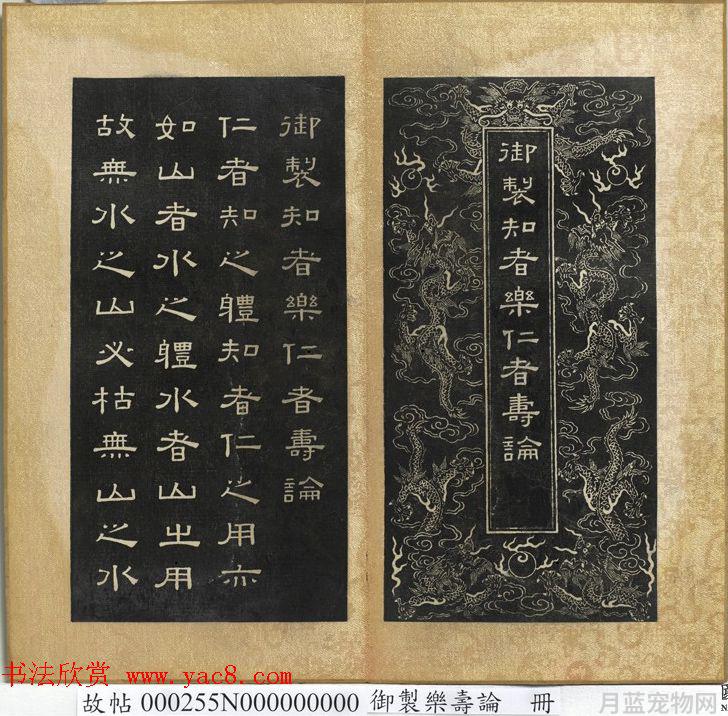 御製知者樂仁者壽論
御製知者樂仁者壽論
仁者知之軆知者仁之用亦
如山者水之軆水者山之用
故無水之山必枯無山之水
书法欣赏 www.yac8.com
月蓝宠物网
故帖 000255N000000000 御製樂壽論 冊